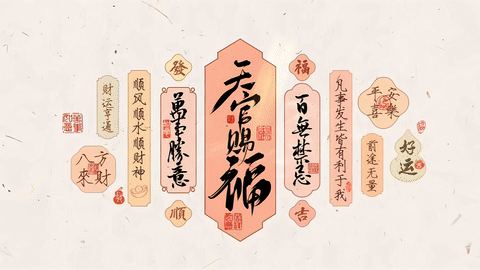 財运亨通
八方
來财
順风順水順财神
發
萬事勝意
順
天官賜福
福
百無禁忌
吉
凡事发生皆有利于我
平安
喜樂
前途无量
好运